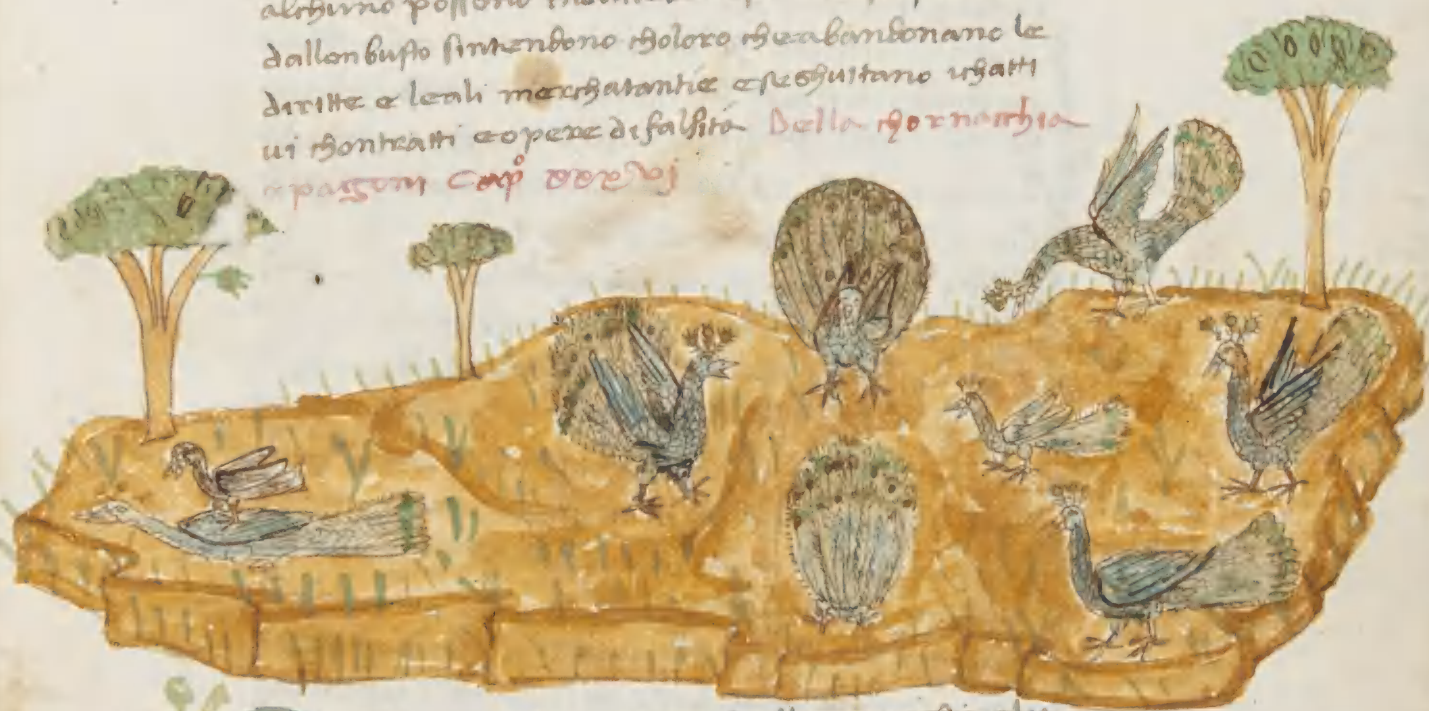 alchuno possono
dallon busto sintendono choloro che abandonano le
diritte e leali merchatantie e seghuitano i chatti
ui chontratti e opere di falsita Della chornacchia
e pagoni Cap°